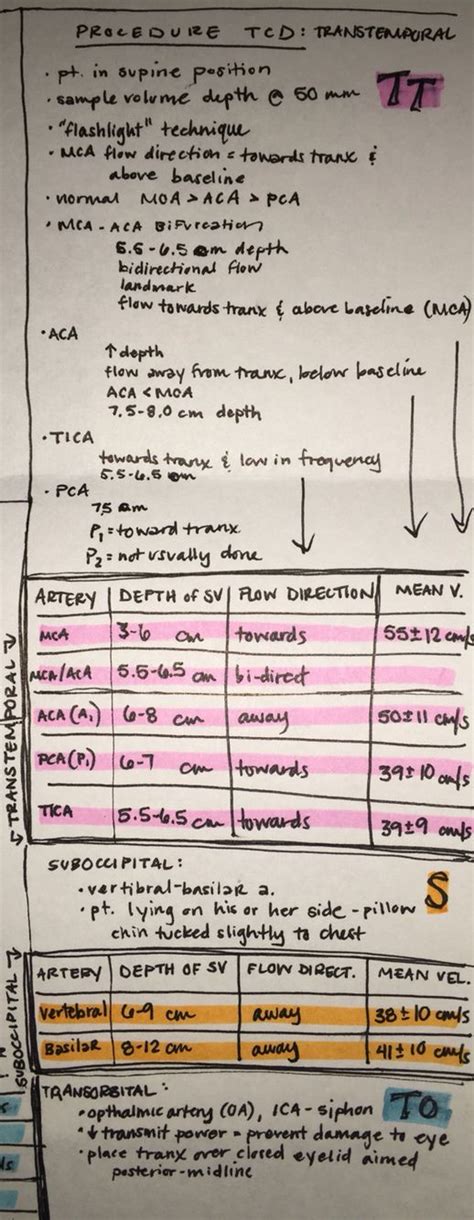 PROCEDURE TCD: TRANSTEMPORAL
TT
· pt. in supine position
· sample volume depth @ 50 mm
· "flashlight" technique
· MCA flow direction = towards tranx &
above baseline
· normal MCA > ACA > PCA
· MCA - ACA Bifurcation
5.5-6.5 cm depth
bidirectional flow
landmark
flow towards tranx & above baseline (MCA)
· ACA
↑ depth
flow away from tranx, below baseline
ACA < MCA
7.5-8.0 cm depth
· TICA
towards tranx & low in frequency
5.5-6.5 cm
· PCA
75 cm
P1 = toward tranx
P2 = not usually done
ARTERY | DEPTH of SV | FLOW DIRECTION | MEAN V.
MCA | 3-6 cm | towards | 55±12 cm/s
MCA/ACA | 5.5-6.5 cm | bi-direct
ACA (A1) | 6-8 cm | away | 50±11 cm/s
PCA (P1) | 6-7 cm | towards | 39±10 cm/s
TICA | 5.5-6.5 cm | towards | 39±9 cm/s
TRANSTEMPORAL
SUBOCCIPITAL:
S
· vertibral-basilar a.
· pt. lying on his or her side - pillow
chin tucked slightly to chest
ARTERY | DEPTH OF SV | FLOW DIRECT. | MEAN VEL.
vertebral | 6-9 cm | away | 38±10 cm/s
Basilar | 8-12 cm | away | 41±10 cm/s
SUBOCCIPITAL
TRANSORBITAL:
TO
· opthalmic artery (OA), ICA - siphon
· ↓ transmit power = prevent damage to eye
· place tranx over closed eyelid aimed
posterior-midline